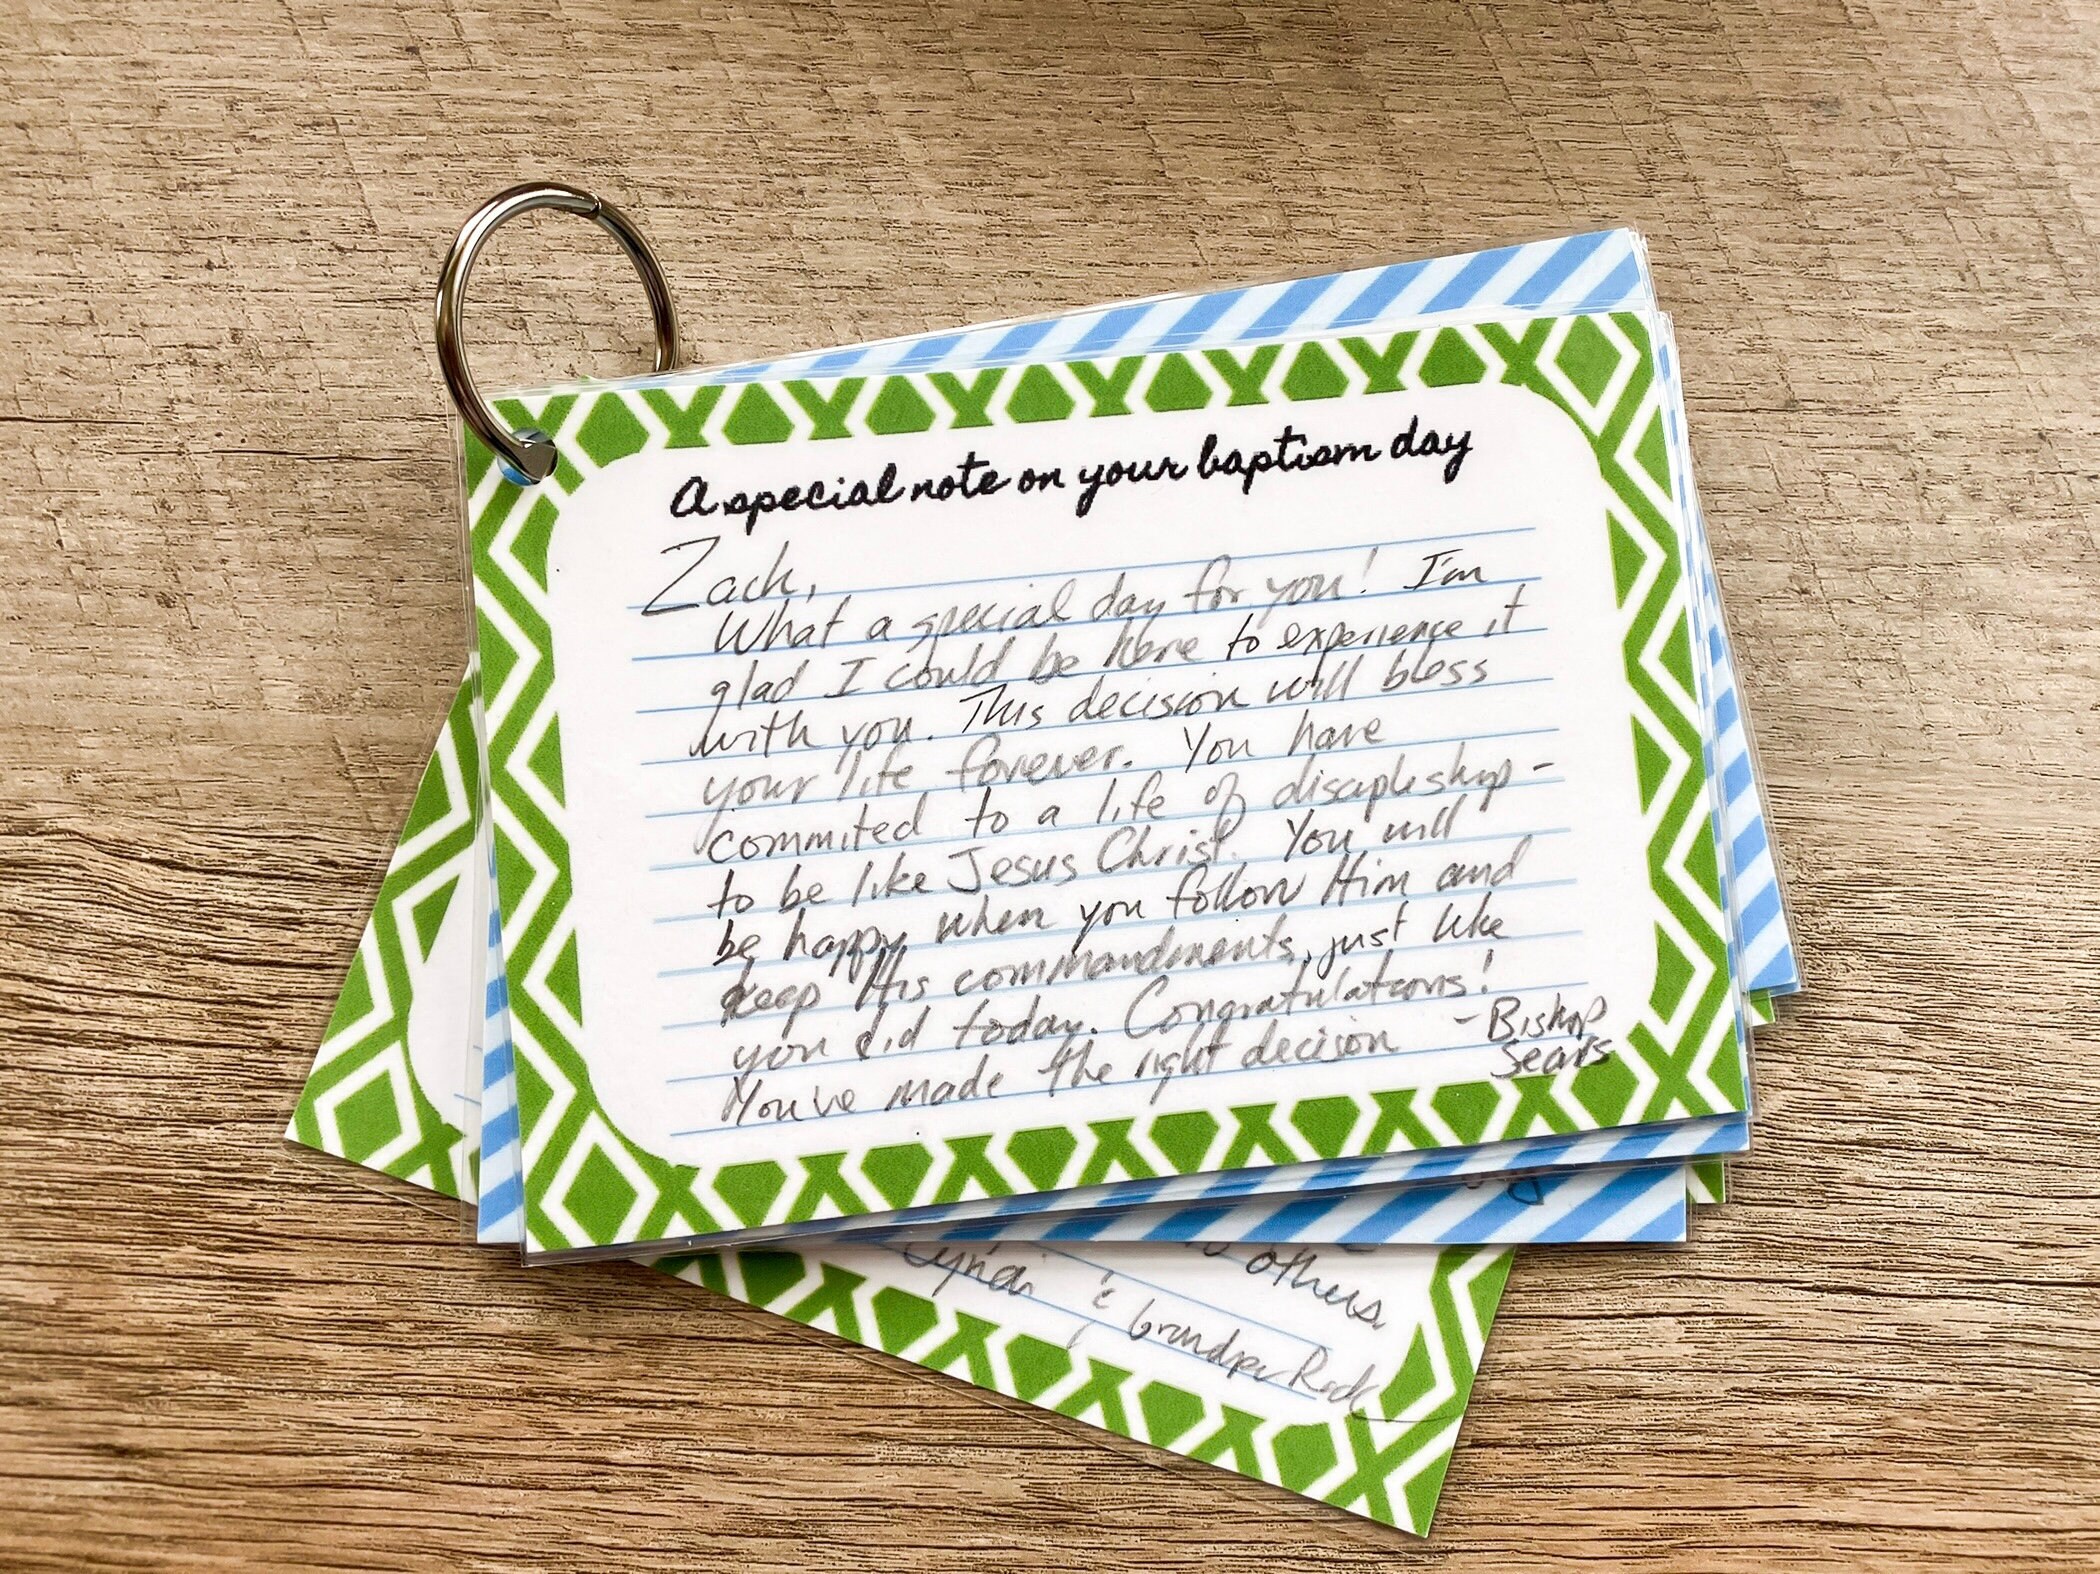 A special note on your baptism day
Zach,
What a special day for you! I'm
glad I could be here to experience it
with you. This decision will bless
your life forever. You have
commited to a life of discipleship -
to be like Jesus Christ. You will
be happy when you follow Him and
keep His commandments, just like
you did today. Congratulations!
You've made the right decision
- Bishop
Sears
others.
& Grandpa